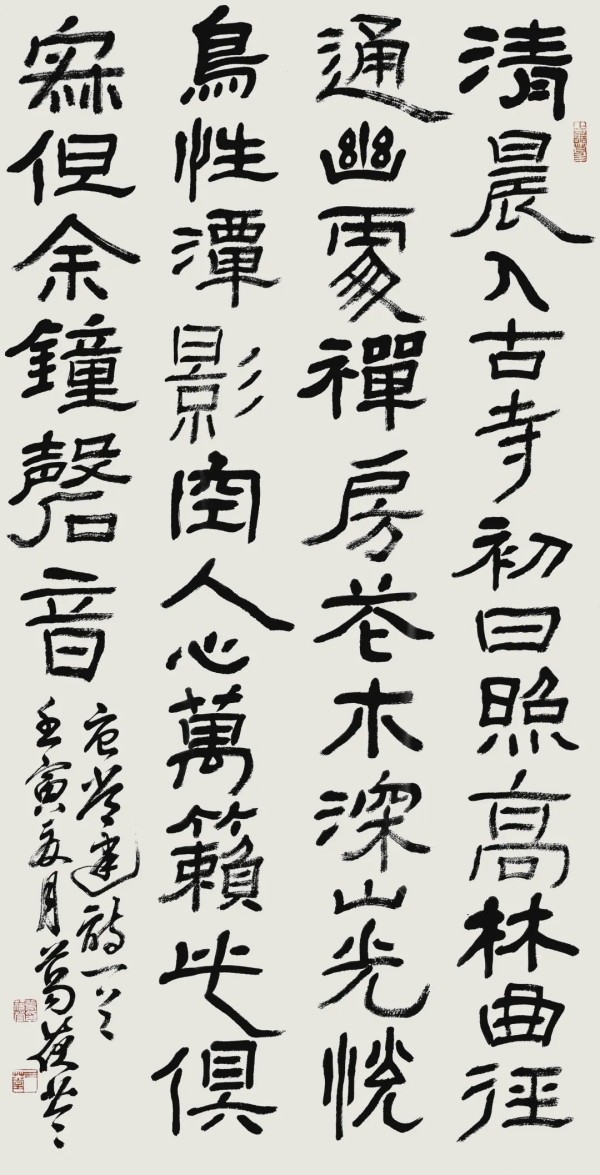 清晨入古寺初日照高林曲径
通幽處禪房花木深山光悦
鳥性潭影空人心萬籟此俱
寂但余鐘磬音
唐常建詩一首
壬寅夏月葛茯苓